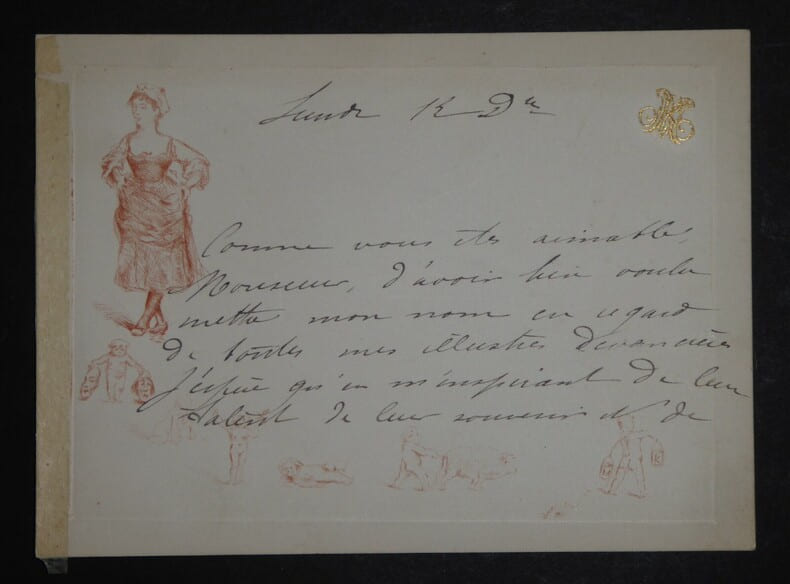 Lundi 12 Dec
Comme vous etes aimable,
Monsieur, d'avoir bien voulu
mettre mon nom en regard
de toutes mes illustres Devancières
J'espère qu'en m'inspirant de leur
talent de leur souvenir et de